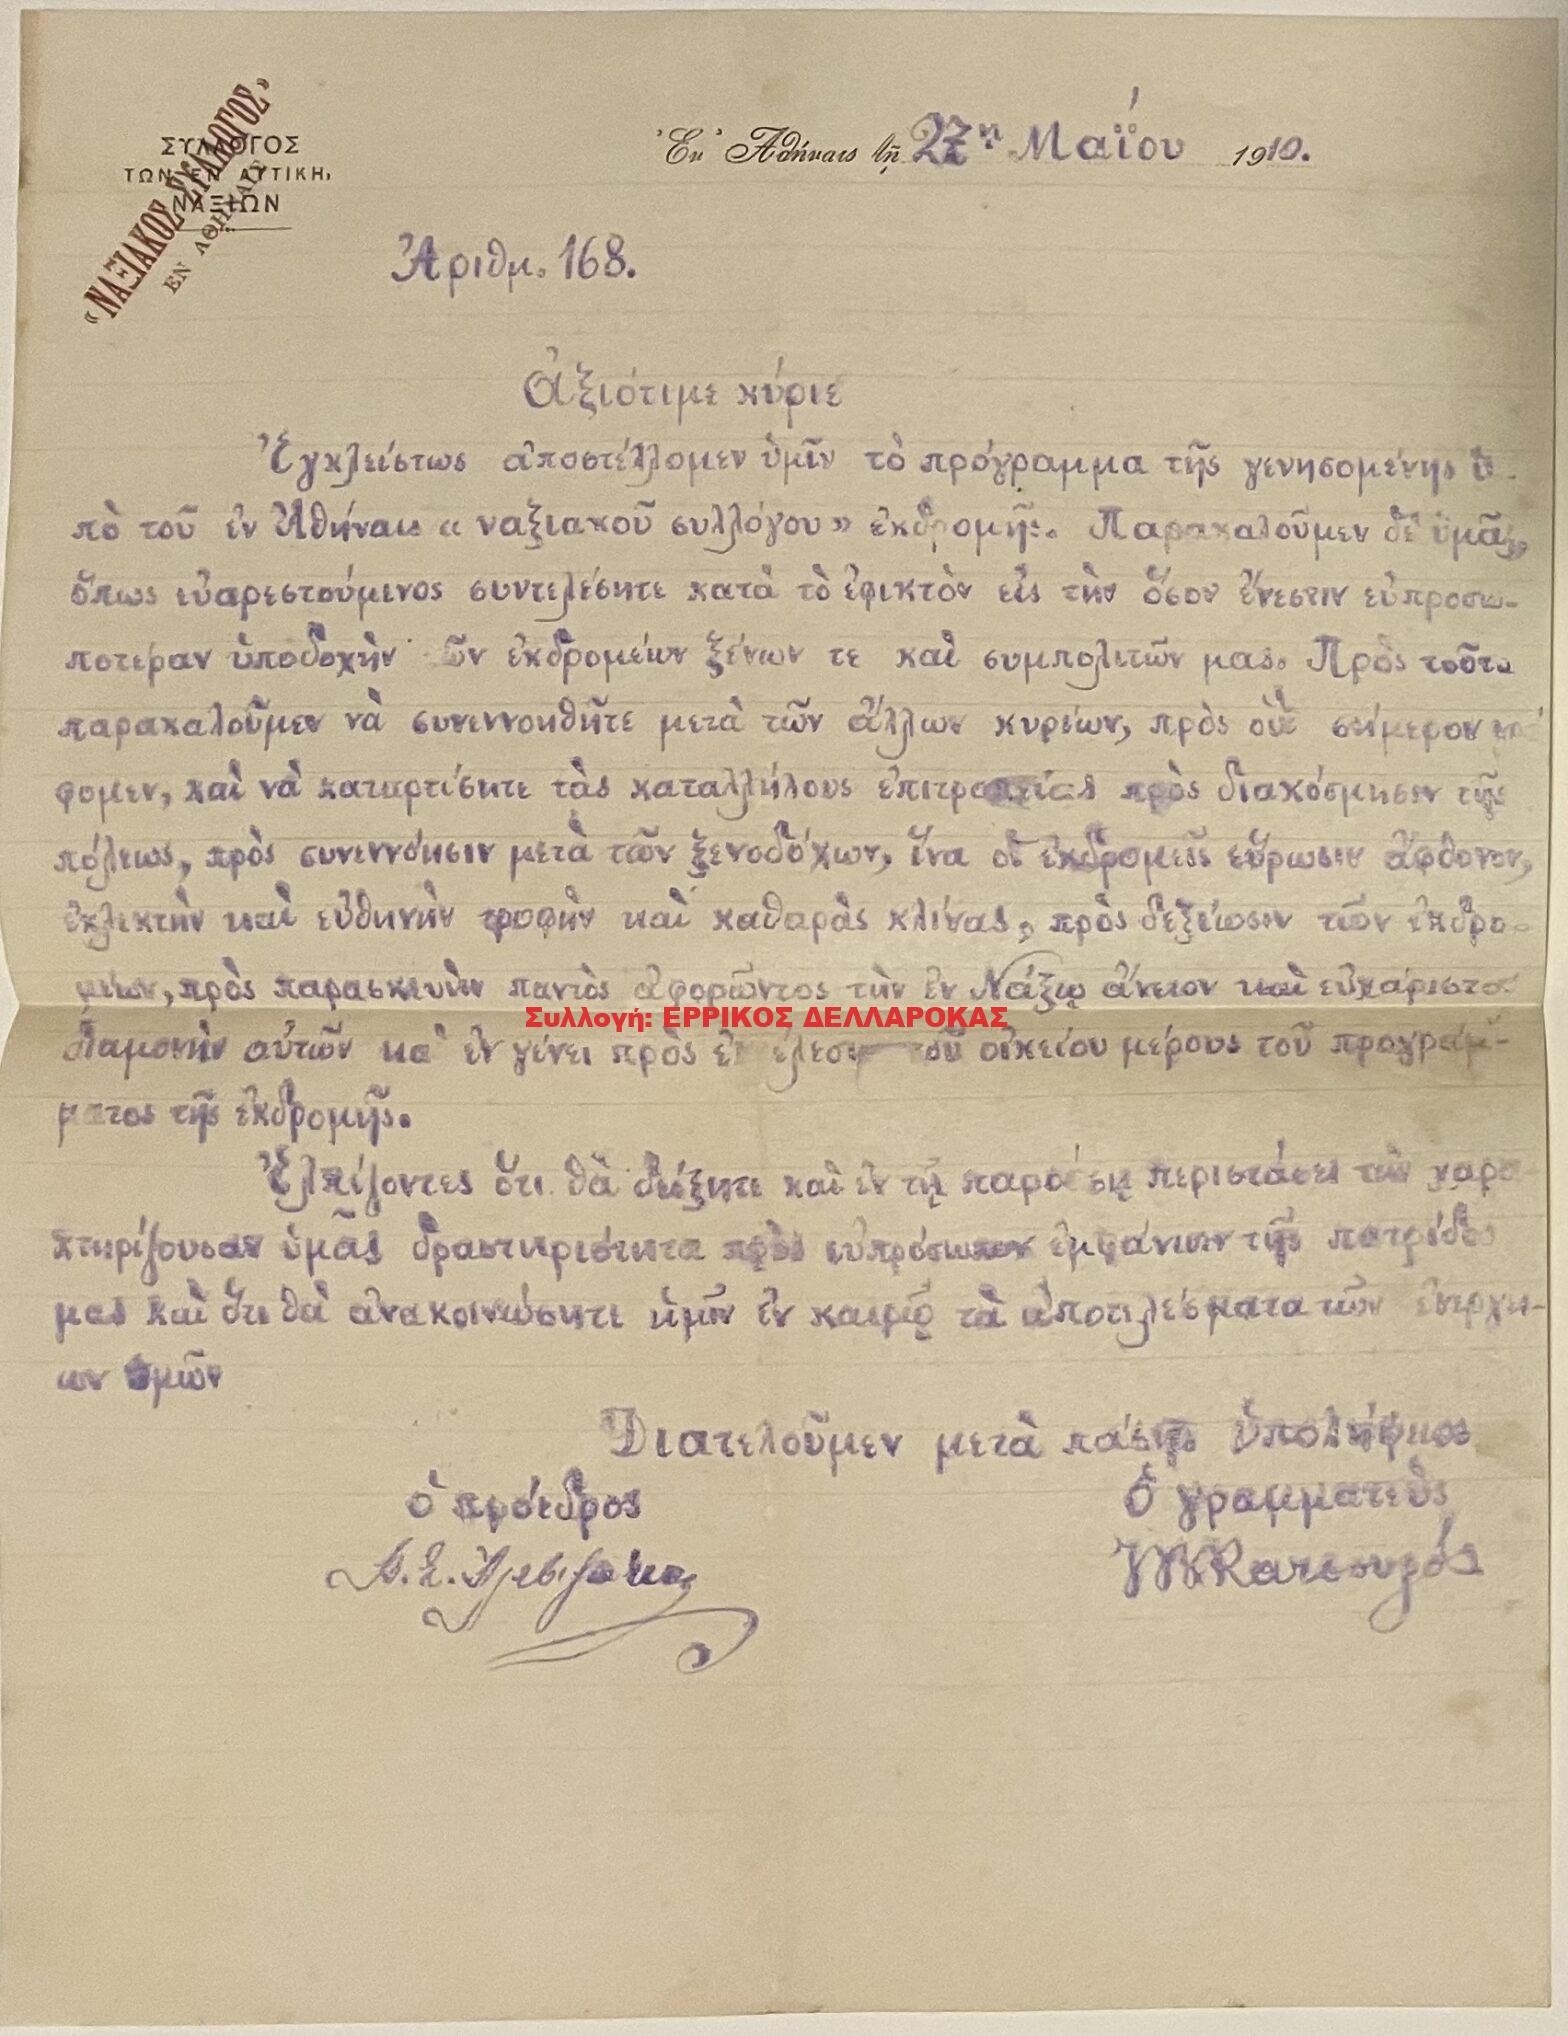 ΣΥΛΛΟΓΟΣ
ΤΩΝ ΕΝ ΑΤΤΙΚΗ,
ΝΑΞΙΩΝ
«ΝΑΞΙΑΚΟΣ ΣΥΛΛΟΓΟΣ»
ΕΝ ΑΘΗΝΑΙΣ
Ἐν Ἀθήναις τῇ 27ῃ Μαΐου 1910.
Ἀριθμ. 168.
Ἀξιότιμε κύριε
Ἐγκλείστως ἀποστέλλομεν ὑμῖν τὸ πρόγραμμα τῆς γενησομένης ὑ-
πὸ τοῦ ἐν Ἀθήναις «ναξιακοῦ συλλόγου» ἐκδρομῆς. Παρακαλοῦμεν δὲ ὑμᾶς,
ὅπως εὐαρεστούμενος συντελέσητε κατὰ τὸ ἐφικτὸν εἰς τὴν ὅσον ἔνεστιν εὐπροσω-
ποτέραν ὑποδοχὴν τῶν ἐκδρομέων ξένων τε καὶ συμπολιτῶν μας. Πρὸς τοῦτο
παρακαλοῦμεν νὰ συνεννοηθῆτε μετὰ τῶν ἄλλων κυρίων, πρὸς οὓς σήμερον γρά
φομεν, καὶ νὰ καταρτίσητε τὰς καταλλήλους ἐπιτροπείας πρὸς διακόσμησιν τῆς
πόλεως, πρὸς συνεννόησιν μετὰ τῶν ξενοδόχων, ἵνα οἱ ἐκδρομεῖς εὕρωσιν ἄφθονον,
ἐκλεκτὴν καὶ εὐθηνὴν τροφὴν καὶ καθαρὰς κλίνας, πρὸς δεξίωσιν τῶν ἐκδρο-
μέων, πρὸς παρασκευὴν παντὸς ἀφορῶντος τὴν ἐν Νάξῳ ἄνετον καὶ εὐχάριστον
διαμονὴν αὐτῶν καὶ ἐν γένει πρὸς ἐκτέλεσιν τοῦ οἰκείου μέρους τοῦ προγράμ-
ματος τῆς ἐκδρομῆς.
Ἐλπίζοντες ὅτι θὰ δείξητε καὶ ἐν τῇ παρούσῃ περιστάσει τὴν χαρα-
κτηρίζουσαν ὑμᾶς δραστηριότητα πρὸς εὐπρόσωπον ἐμφάνισιν τῆς πατρίδος
μας καὶ ὅτι θὰ ἀνακοινώσητε ἡμῖν ἐν καιρῷ τὰ ἀποτελέσματα τῶν ἐνεργει-
ων ὑμῶν
Διατελοῦμεν μετὰ πάσης ὑπολήψεως
ὁ πρόεδρος
Ὁ γραμματεὺς
Συλλογή: ΕΡΡΙΚΟΣ ΔΕΛΛΑΡΟΚΑΣ